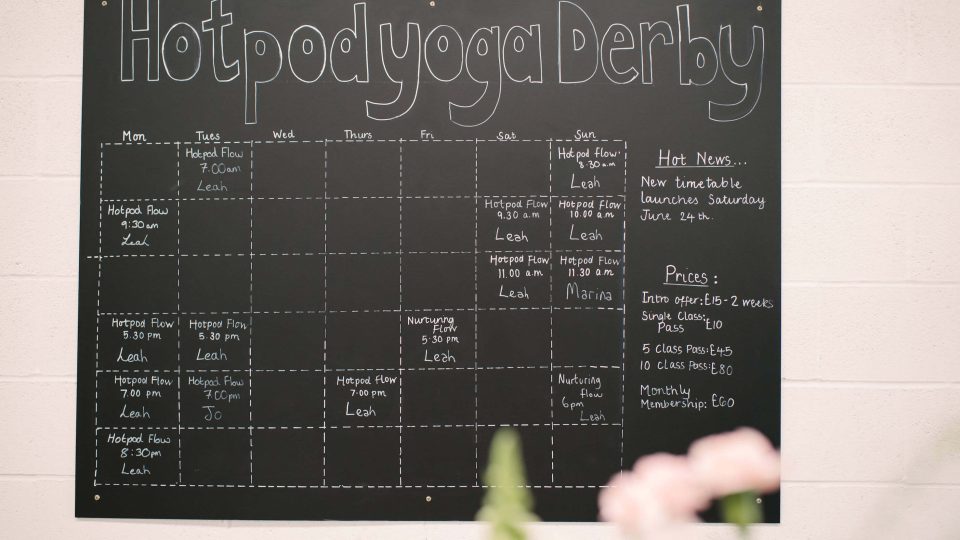 Hotpodyoga Derby
Mon Tues Wed Thurs Fri Sat Sun
Hotpod Flow
7.00am
Leah
Hotpod flow
8.30a.m
Leah
Hotpod Flow
9:30am
Leah
Hotpod Flow
9.30 a.m
Leah
Hotpod Flow
10.00 a.m
Leah
Hotpod Flow
11.00 a.m
Leah
Hotpod Flow
11.30 a.m
Marina
Hotpod Flow
5.30 pm
Leah
Hotpod Flow
5.30 pm
Leah
Nurturing
Flow
5.30 pm
Leah
Hotpod Flow
7.00 pm
Leah
Hotpod Flow
7.00pm
Jo
Hotpod Flow
7.00pm
Leah
Nurturing
flow
6pm
Leah
Hotpod Flow
8:30pm
Leah
Hot News...
New timetable
launches Saturday
June 24th.
Prices:
Intro offer: £15 - 2 weeks
Single Class
Pass £10
5 Class Pass: £45
10 Class Pass: £80
Monthly
Membership: £60